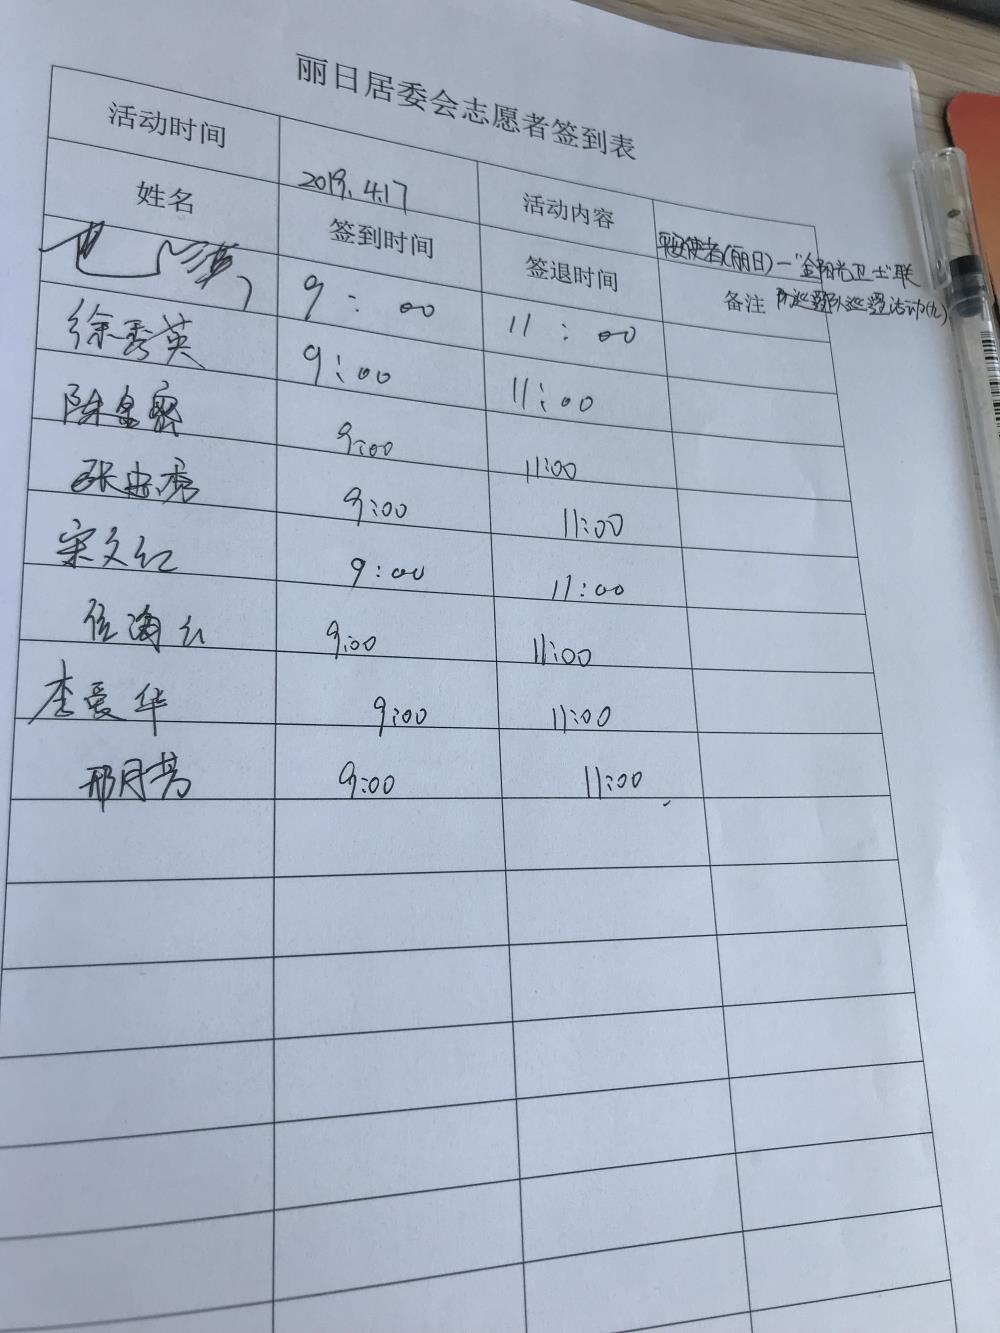 丽日居委会志愿者签到表
活动时间 2019.4.17 活动内容 平安使者(丽日)一"金阳光卫士"联
姓名 签到时间 签退时间 备注
9:00 11:00
徐秀英 9:00 11:00
陈 9:00 11:00
张 9:00 11:00
宋文红 9:00 11:00
9:00 11:00
李爱华 9:00 11:00
邢月芳 9:00 11:00